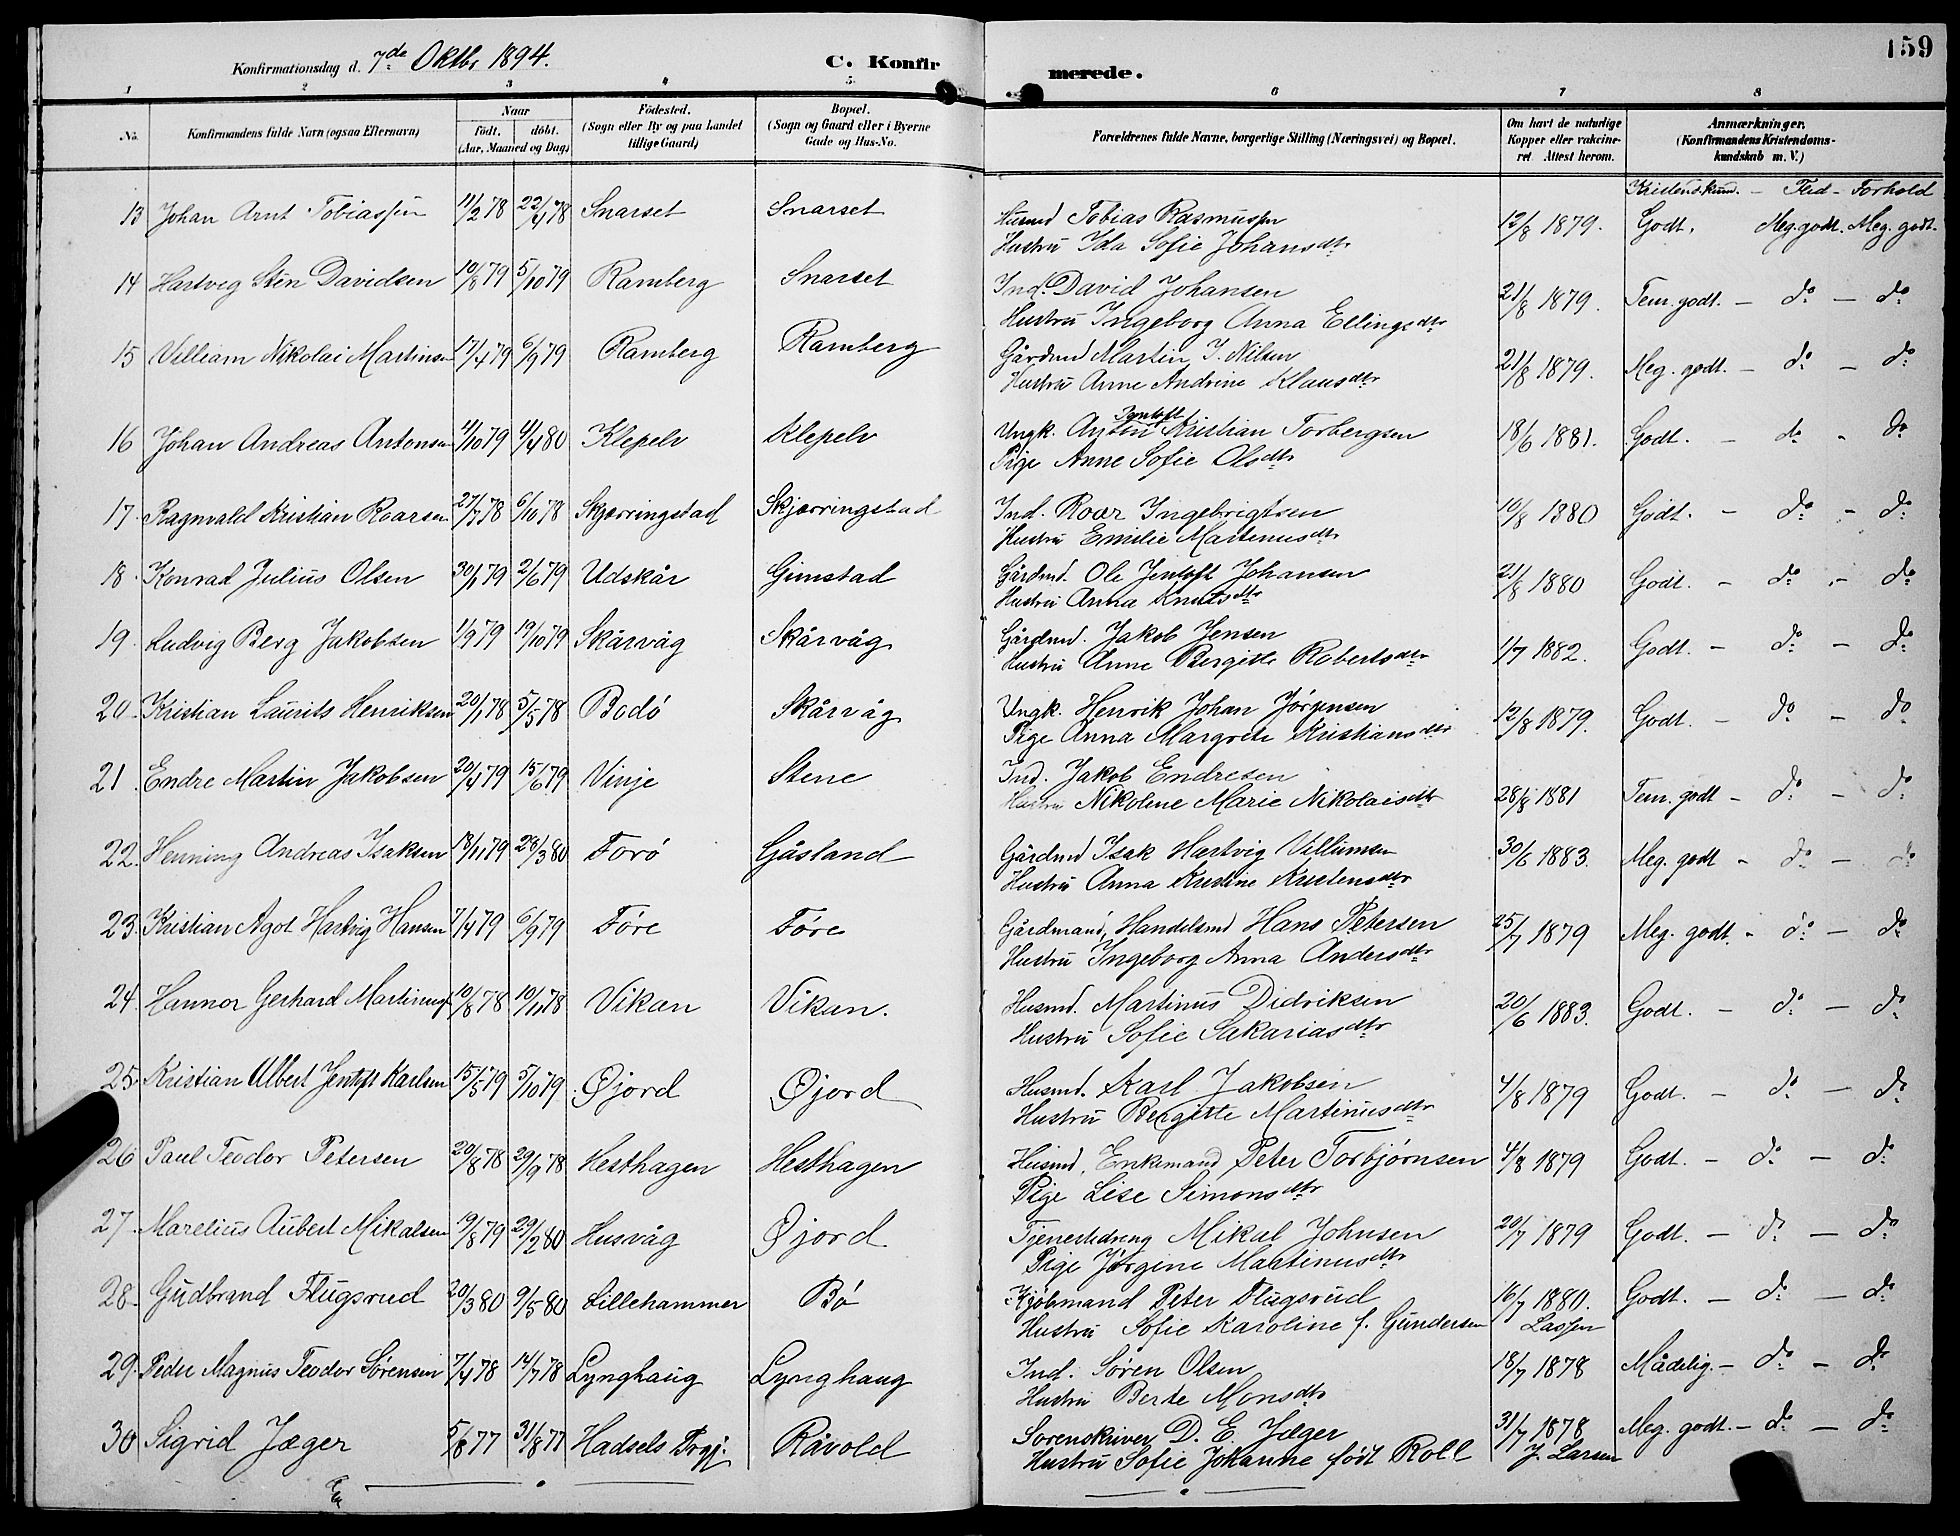 159
Konfirmationsdag d. 7de Oktbr 1894.
C. Konfirmerede.
1 2 3 4 5 6 7 8
No. Konfirmandens fulde Navn (ogsaa Efternavn) Naar født. døbt. (Aar, Maaned og Dag) Fødested. (Sogn eller By og paa Landet tillige Gaard) Bopæl. (Sogn og Gaard eller i Byerne Gade og Hus-No. Forældrenes fulde Navne, borgerlige Stilling (Næringsvei) og Bopæl. Om havt de naturlige Kopper eller vakcineret. Attest herom. Anmærkninger. (Konfirmandens Kristendomskundskab m. V.)
Kristendskund. - Flid - Forhold
13 Johan Arnt Tobiassen 11/2 78 22/4 78 Snarset Snarset Husmd Tobias Rasmussen 12/8 1879. Godt, Meg. godt. Meg. godt.
Hustru Ida Sofie Johansdtr
14 Hartvig Sten Davidsen 10/8 79 5/10 79 Ramberg Snarset Ind. David Johansen 21/8 1879. Tem. godt. - do - do
Hustru Ingeborg Anna Ellingsdtr
15 Villiam Nikolai Martinsen 17/4 79 6/9 79 Ramberg Ramberg Gårdmd Martin J. Nilsen 21/8 1879. Meg. godt. - do - do
Hustru Anne Andrine Klausdtr
16 Johan Andreas Antonsen 4/10 79 4/4 80 Klepelv Klepelv Ungk. Anton Jentoft Kristian Torbergsen 18/6 1881. Godt. - do - do
Pige Anne Sofie Olsdtr
17. Ragnvald Kristian Roarsen 27/7 78 6/10 78 Skjærringstad Skjærringstad Ind. Roar Ingebrigtsen 10/8 1880 Godt. - do - do
Hustru Emilie Martinusdtr
18. Konrad Julius Olsen 30/1 79 2/6 79 Udskår Gimstad Gårdmd. Ole Jentoft Johansen 21/8 1880 Godt. - do - do
Hustru Anna Knutsdtr
19. Ludvig Berg Jakobsen 1/9 79 19/10 79 Skårvåg Skårvåg Gårdmd. Jakob Jensen 1/7 1882. Godt. - do - do
Hustru Anne Bergitte Robertsdtr
20. Kristian Laurits Henriksen 20/1 78 5/5 78 Bodø Skårvåg Ungk. Henrik Johan Jørgensen 12/8 1879. Godt. - do - do
Pige Anna Margrete Kristiansdtr
21. Endre Martin Jakobsen 20/4 79 15/6 79 Vinje Stene Ind. Jakob Endresen 28/8 1881 Tem. godt - do - do
Hustru Nikoline Marie Nikolaisdtr
22. Henning Andreas Isaksen 18/11 79 28/3 80 Forø Gåsland Gårdmd Isak Hartvig Villumsen 30/6 1883. Meg. godt - do - do
Hustru Anna Kristine Kristensdtr
23. Kristian Agot Hartvig Hansen 7/4 79 6/9 79 Føre Føre Gårdmand, Handelsmd Hans Petersen 25/7 1879 Meg. godt. - do - do
Hustru Ingeborg Anna Andersdtr
24. Hannor Gerhard Martinus 10/8 78 10/11 78 Vikan Vikan. Husmd. Martinus Didriksen 20/6 1883. Godt. - do - do
Hustru Sofie Sakariasdtr
25. Kristian Albert Jentoft Karlsen 15/5 79 5/10 79 Øjord Øjord Husmd. Karl Jakobsen 4/8 1879 Godt. - do - do
Hustru Bergitte Martinusdtr
26 Paul Teodor Petersen 20/8 78 29/9 78 Hesthagen Hesthagen Husmd, Enkemand Peter Torbjørnsen 4/8 1879 Godt. - do - do
Pige Lise Simonsdtr
27. Marelius Aubert Mikalsen 19/8 79 29/2 80 Husvåg Øjord Tjenestedreng Mikal Johnsen 20/7 1879 Godt. - do - do
Pige Jørgine Martinusdtr
28. Gudbrand Flugsrud 20/3 80 9/5 80 Lillehammer Bø Kjøbmand Peter Flugsrud 16/7 1880. Godt. - do - do
Hustru Sofie Karoline f. Gundersen Lassen
29. Peder Magnus Teodor Sørensen 7/4 78 14/7 78 Lynghaug Lynghaug Ind. Søren Olsen 18/7 1878 Mådelig. - do - do
Hustru Berte Monsdtr
30 Sigrid Jæger 5/8 77 31/8 77 Hadsels Prgj. Råvold Sorenskriver D. E. Jæger 31/7 1878 Meg. godt. - do - do
Hustru Sofie Johanne født Roll J. Larsen